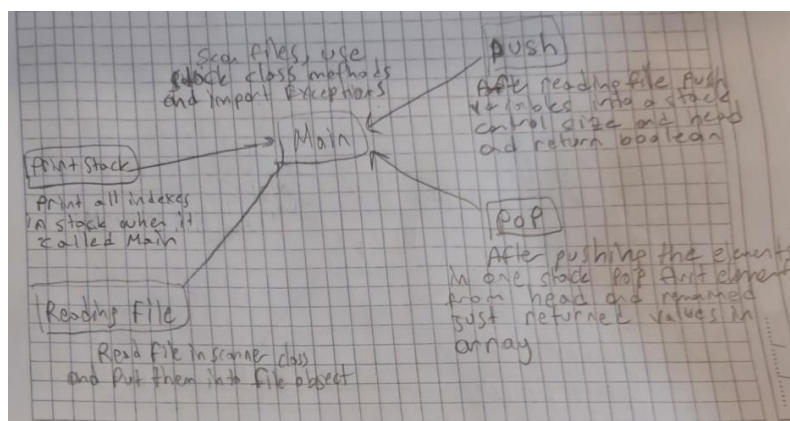 Scan files, use
stack class methods
and import Exceptions
Main
push
After reading file push
variables into a stack
control size and head
ad return boolean
Print Stack
print all indexes
in stack when it
called Main
POP
After pushing the elements
in one stack pop first element
from head and
just returned values in
array
Reading File
Read file in scanner class
and put them into file object